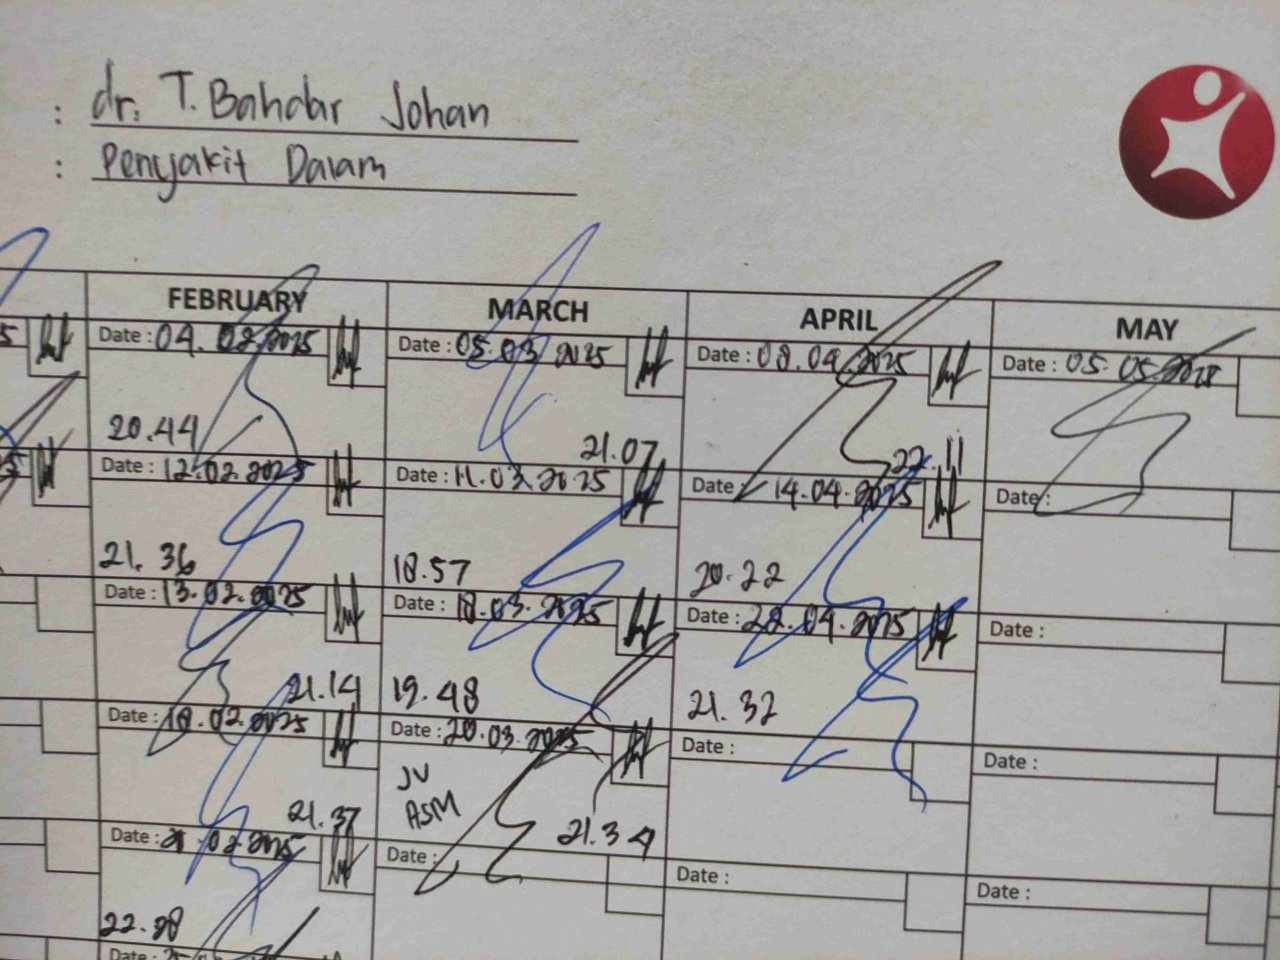 : dr. T. Bahdar Johan
: Penyakit Dalam
FEBRUARY MARCH APRIL MAY
5 Date : 04.02.2025 Date : 05.03.2025 Date : 08.04.2025 Date : 05.05.2025
20.44 21.07 22.11
Date : 12.02.2025 Date : 11.03.2025 Date : 14.04.2025 Date :
21.36 18.57 20.22
Date : 13.02.2025 Date : 18.03.2025 Date : 28.04.2025 Date :
21.14 19.48 21.32
Date : 18.02.2025 Date : 20.03.2025 Date : Date :
JV
ASM
21.37 21.34
Date : 21.02.2025 Date : Date : Date :
22.28
Date :